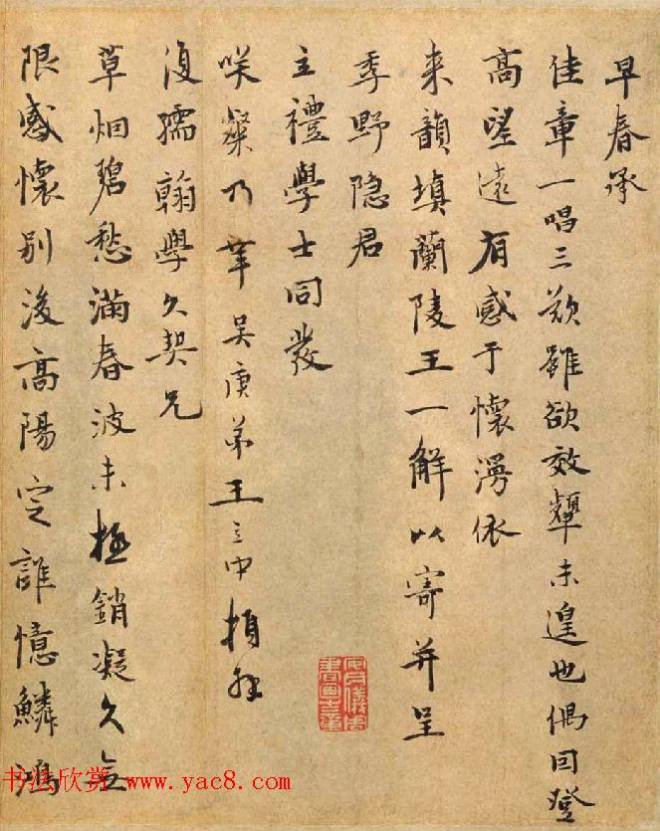 早春承
佳章一唱三歎雖欲效顰未遑也偶因登
高望遠有感于懷漫依
来韻填蘭陵王一解以寄并呈
季野隐君
立禮學士同發
咲粲乃幸 吴庚弟王立中頓拜
復孺翰學久契兄
草烟碧愁滿春波未極銷凝久無
限感懷别後高陽定誰憶鱗鴻
安氏儀周
書畫之章
书法欣赏 www.yac8.com